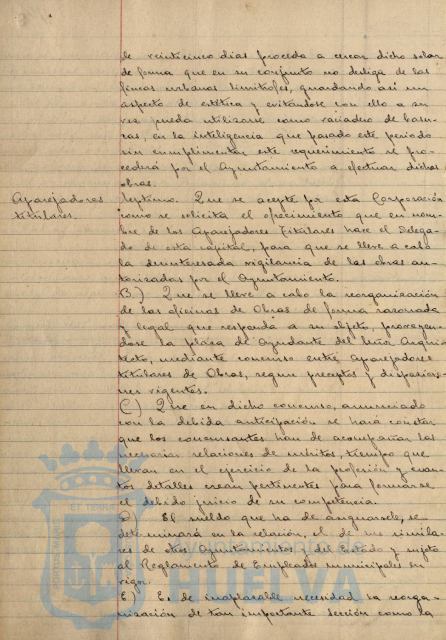 de veinticinco dias proceda a cercar dicho solar
de forma que en su conjunto no desdiga de las
fincas urbanas limitrofes, guardando asi un
aspecto de estética y evitándose con ello a su
vez pueda utilizarse como vaciadero de basu-
ras, en la inteligencia que pasado este periodo
sin cumplimentar este requerimiento se pro-
cederá por el Ayuntamiento a efectuar dichas
obras.
Aparejadores
titulares.
Septimo. Que se acepte por esta Corporación
como se solicita el ofrecimiento que en nom-
bre de los Aparejadores Titulares hace el Delega-
do de esta capital, para que se lleve a cabo
la desinteresada vigilancia de las obras au-
torizadas por el Ayuntamiento.
B.) Que se lleve a cabo la reorganización
de las oficinas de Obras de forma razonada
y legal que responda a su objeto, proveyen-
dose la plaza de Ayudante del Señor Arqui-
tecto, mediante concurso entre Aparejadores
titulares de Obras, segun preceptos y disposicio-
nes vigentes.
C) Que en dicho concurso, anunciado
con la debida anticipación se hará constar
que los concursantes han de acompañar las
necesarias relaciones de méritos, tiempo que
llevan en el ejercicio de la profesión y cuan-
tos detalles crean pertinentes para formarse
el debido juicio de su competencia.
D) El sueldo que ha de asignarsele, se
determinará en la relación, el de sus simila-
res de otros Ayuntamientos y del Estado y sujeto
al Reglamento de Empleados municipales en
vigor.
E) Es de inaplazable necesidad la reorga-
nización de tan importante sección como la
HUELVA